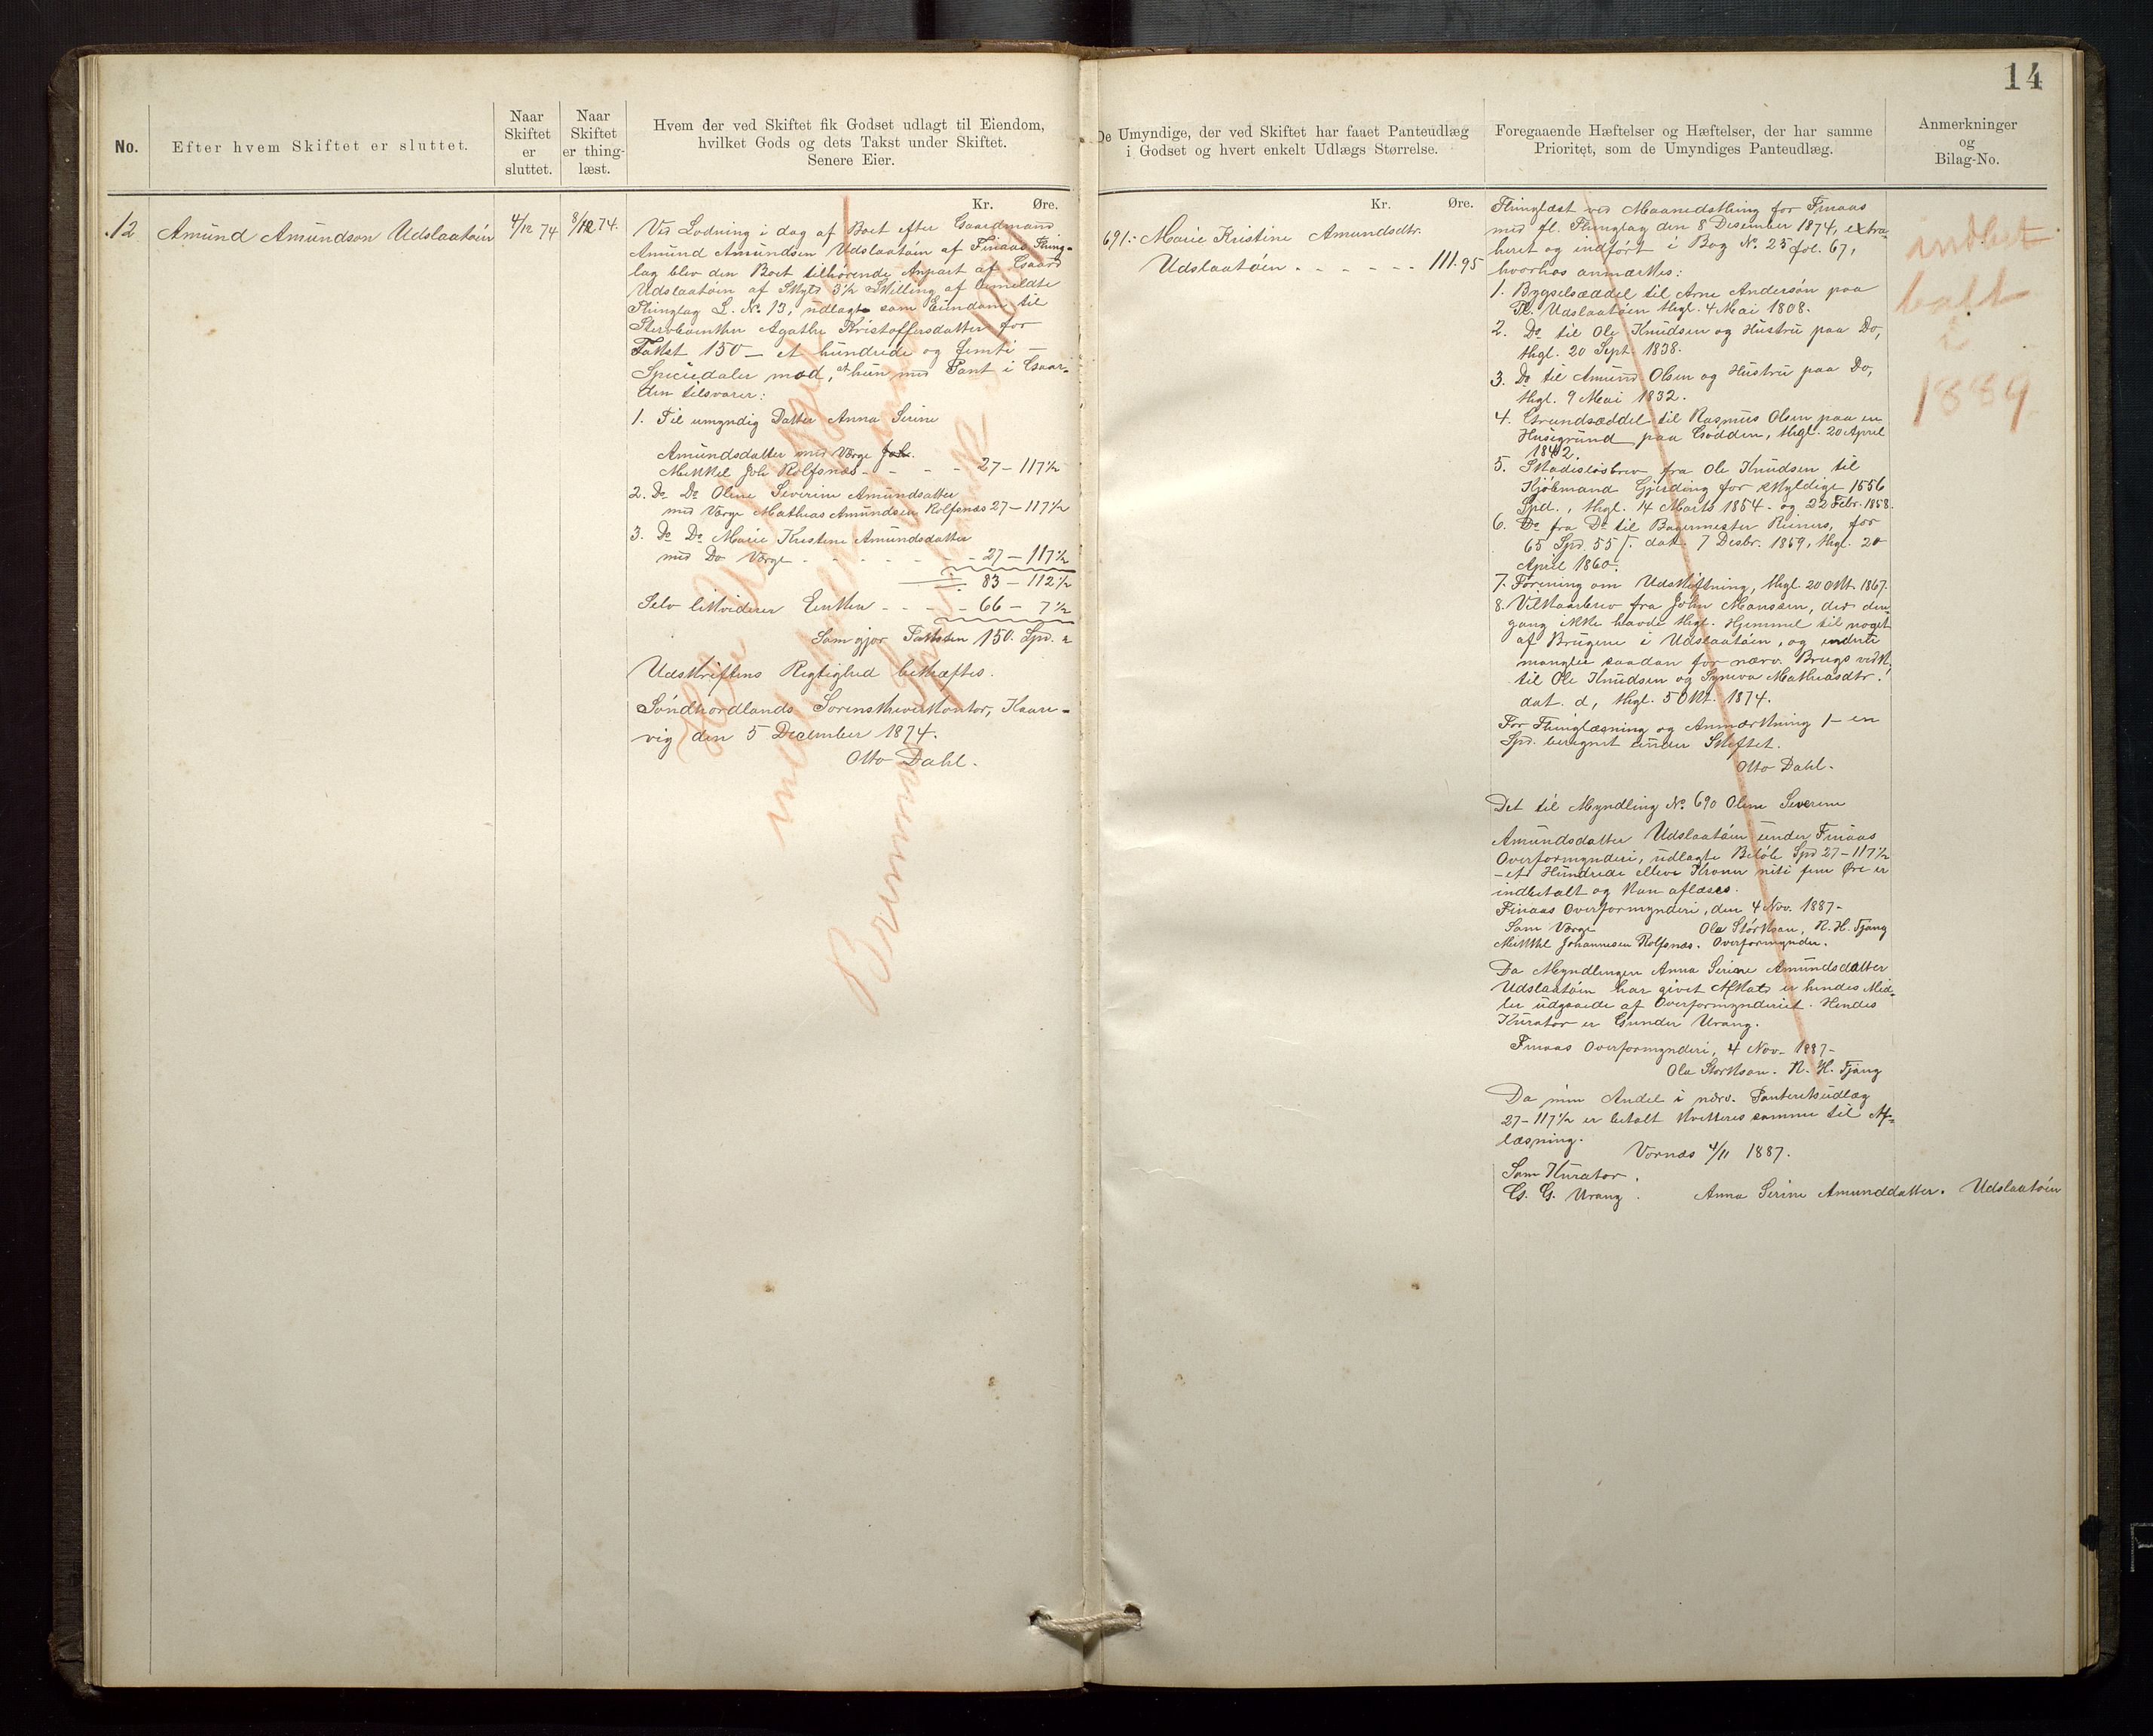 14
No.
Efter hvem Skiftet er sluttet.
Naar
Skiftet
er
sluttet.
Naar
Skiftet
er thing-
læst.
Hvem der ved Skiftet fik Godset udlagt til Eiendom,
hvilket Gods og dets Takst under Skiftet.
Senere Eier.
De Umyndige, der ved Skiftet har faaet Panteudlæg
i Godset og hvert enkelt Udlægs Størrelse.
Foregaaende Hæftelser og Hæftelser, der har samme
Prioritet, som de Umyndiges Panteudlæg.
Anmerkninger
og
Bilag-No.
12
Amund Amundson Udslaatöin
4/12 74
8/12 74.
Kr. Øre.
Ved Lodning i dag af Boet efter Gaardmand
Amund Amundsen Udslaatöin af Finaas Thing-
lag blev den Boet tilhørende Anpart af Gaard
Udslaatöin af Skyld 3½ Skilling af bemeldte
Thinglag L. No. 13, udlagte som Eiendom til
Stervboenken Agathe Kristoffersdatter for
Takst 150 – et hundrede og femti –
Speciedaler mod, at hun med Pant i Gaar-
den tilsvarer:
1. Til umyndig Datter Anna Serine
Amundsdatter med Værge
Mikkel Joh Rolfsnæs - - - 27 – 117½
2. Do Do Oline Severine Amundsatter
med Værge Mathias Amundsen Rolfsnæs 27 – 117½
3. Do Do Marie Kristine Amundsdatter
med Do Værge - - - - 27 – 117½
83 – 112½
Selv likviderer Enken - - - 66 – 7½
Som gjør Taksten 150. Spd.
Udskriftens Rigtighed bekræftes.
Söndhordlands Sorenskriverkontor, Kaare-
vig den 5 December 1874.
Otto Dahl.
Kr. Øre.
691.- Marie Kristine Amundsdtr.
Udslaatöin - - - - - - 111.95
Thinglæst ved Maanedsthing for Finaas
med fl. Thinglag den 8 Desember 1874, extra-
heret og indført i Bog No. 25 fol. 67,
hvorhos anmærkes:
1. Bygselsæddel til Arne Andersön paa
Pl. Udslaatöin thgl. 4 Mai 1808.
2. Do til Ole Knudsen og Hustru paa Do,
thgl. 20 Sept. 1838.
3. Do til Amund Olsen og Hustru paa Do,
thgl. 9 Mai 1832.
4. Grundsæddel til Rasmus Olsen paa en
Husegrund paa Godden, thgl. 20 April
1842.
5. Skadesløsbrev fra Ole Knudsen til
Kjöbmand Gjerding for skyldige 1556
Spd., thgl. 14 Marts 1854. og 22 Febr. 1858.
6. Do fra Do til Bagermester Reiners, for
65 Spd. 55 ſ. dat. 7 Desbr. 1859, thgl. 20
April 1860.
7. Forening om Udskiftning, thgl. 20 Okt. 1867.
8. Vilkaarbrev fra John Monssen, der den-
gang ikke havde thgl. Hjemmel til noget
af Brugene i Udslaatöin, og endnu
mangler saadan for nærv. Brugs vedk.
til Ole Knudsen og Syneva Mathiasdtr.
dat. d, thgl. 5 Okt. 1874.
For Thinglæsning og Anmærkning 1 – en
Spd. beregnet under Skiftet.
Otto Dahl.
Det til Myndling No. 690 Oline Severine
Amundsdatter Udslaatöin under Finaas
Overformynderi, udlagte Beløb Spd 27 – 117½
– et Hundrede elleve Kroner niti fem Øre er
indbetalt og kan aflæses.
Finaas Overformynderi, den 4 Nov. 1887 –
Som Værge Ola Störkson, R. H. Tjong
Mikkel Johannesen Rolfsnæs. Overformynder.
Da Myndlingen Anna Serine Amundsdatter
Udslaatöin har givet Afkald er hendes Mid-
ler udgaaede af Overformynderiet. Hendes
Kurator er Gunder Urang.
Finaas Overformynderi, 4 Nov. 1887 –
Ola Storkson. R. H. Tjong
Da min Andel i nærv. Panteretsudlæg
27 – 117½ er betalt kvitteres samme til Af-
læsning.
Vornæs 4/11 1887.
Som Kurator.
G. G. Urang. Anna Serine Amunddatter. Udslaatöin
indbet
balt
i
1889